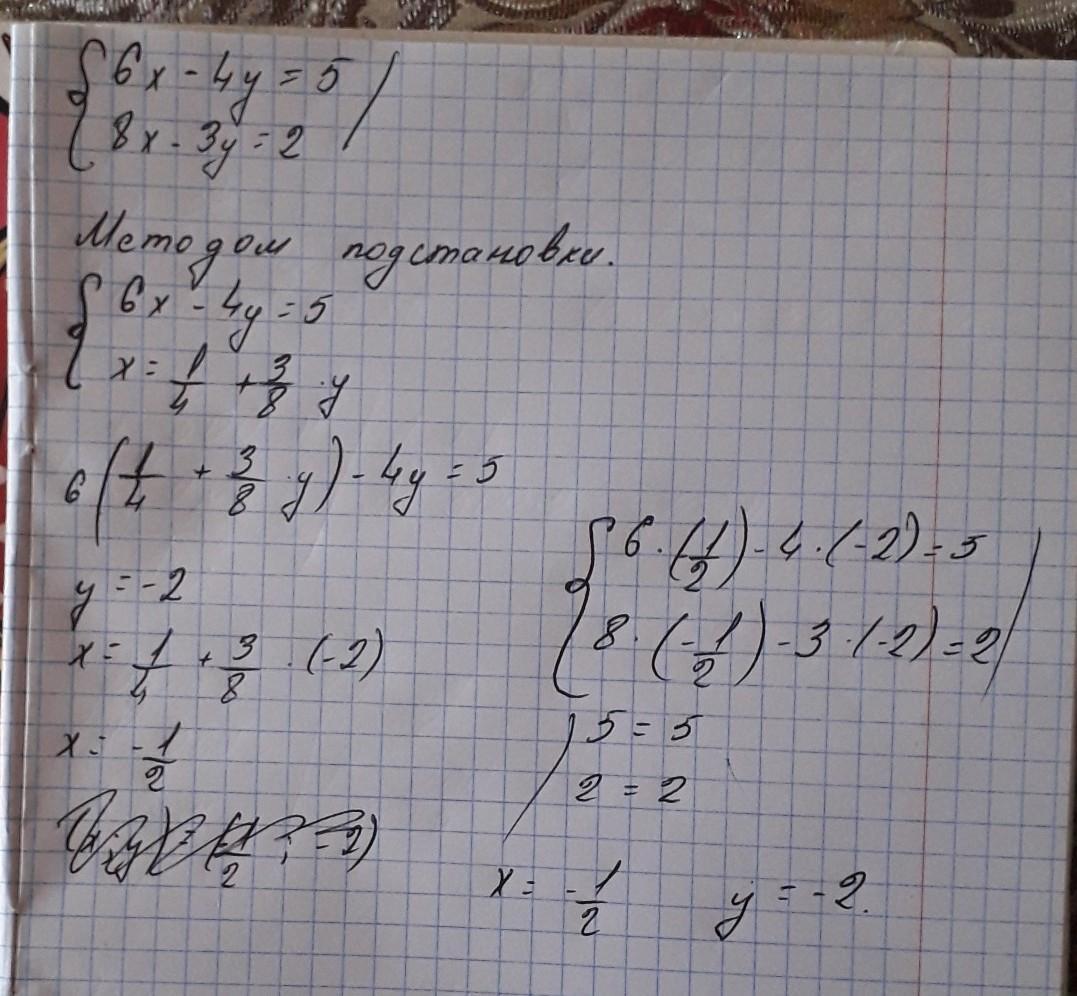 { 6x - 4y = 5 /
8x - 3y = 2
Методом подстановки.
{ 6x - 4y = 5
x = 1/4 + 3/8 · y
6(1/4 + 3/8 · y) - 4y = 5
y = -2
x = 1/4 + 3/8 · (-2)
x = -1/2
{ 6 · (1/2) - 4 · (-2) = 5
8 · (-1/2) - 3 · (-2) = 2 /
/ 5 = 5
2 = 2
x = -1/2 y = -2.